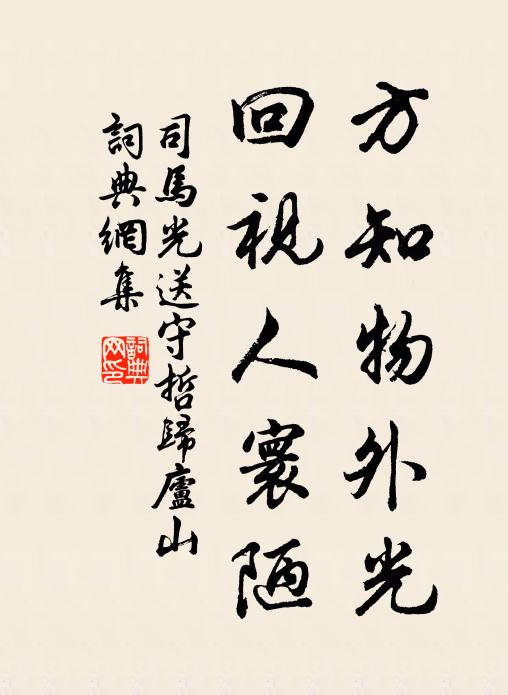 方知物外光
回視人寰陋
司馬光送守哲歸廬山
詞典網集
詞典网印